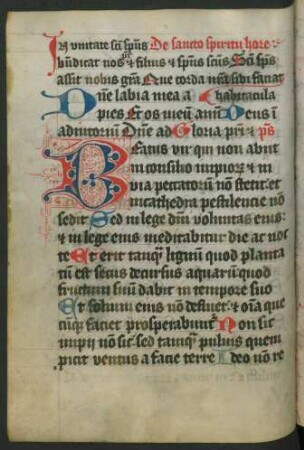 In unitate sci spus De sancto spiritu hore
bndicat nos & filius & spus scus Sci sps
assit nobis gra Que corda nra sibi faciat
Dne labia mea a habitacula
pies Et os meu annu Deus i
adiutoriu Dne ad Gloria pri & ps
Beatus vir qui non abiit
in consilio impior & in
via peccatoru no stetit et
in cathedra pestilencie no
sedit Sed in lege dni voluntas eius
& in lege eius meditabitur die ac noc
te Et erit tanq lignu quod planta
tu est secus decursus aquaru quod
fructum suu dabit in tempore suo
Et folium eius no defluet & oia que
cuq faciet prosperabunt Non sic
impii no sic sed tanq puluis quem
picit ventus a facie terre Ideo no re